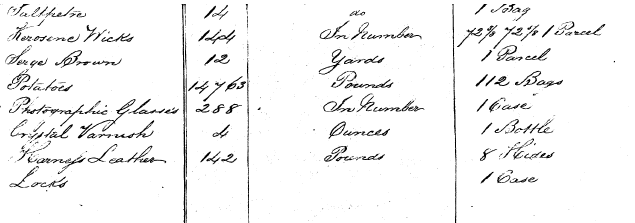 Saltpetre 14 do 1 Bag
Kerosine Wicks 144 In Number 72/0 72/0 1 Parcel
Serge Brown 12 Yards 1 Parcel
Potatoes 14763 Pounds 112 Bags
Photographic Glasses 288 In Number 1 Case
Crystal Varnish 4 Ounces 1 Bottle
Harness Leather 142 Pounds 8 Hides
Locks 1 Case